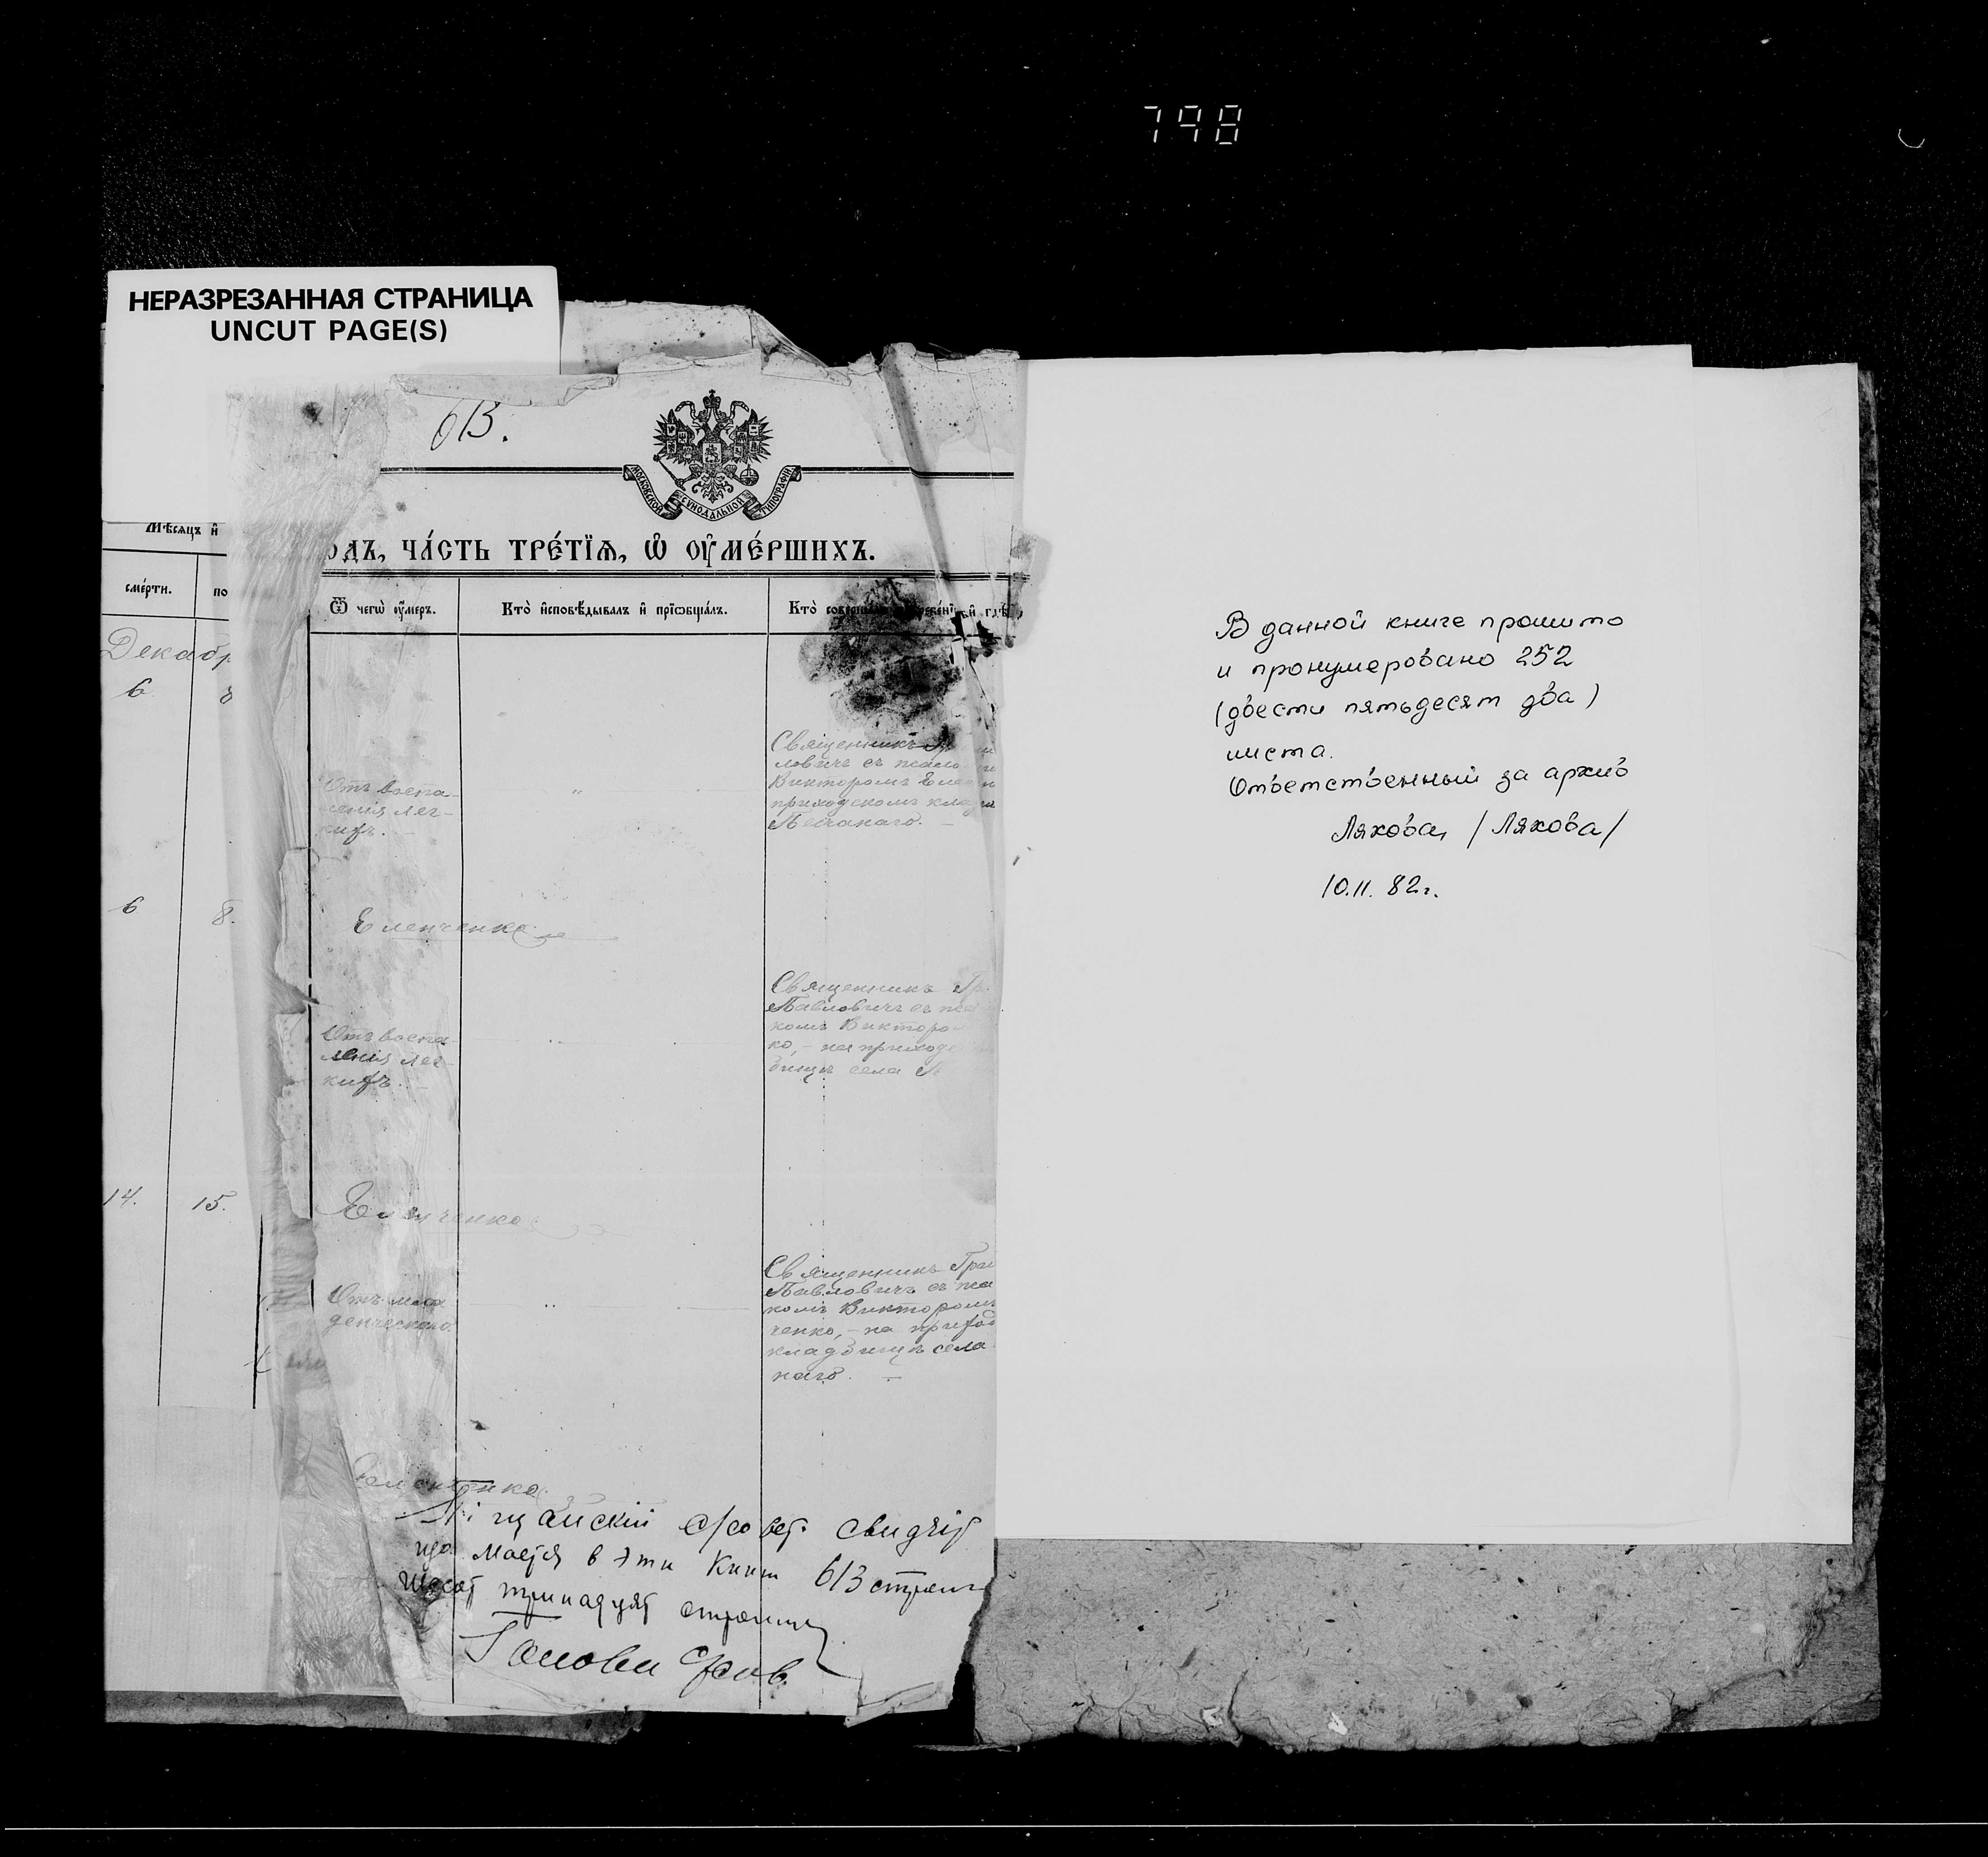 798
НЕРАЗРЕЗАННАЯ СТРАНИЦА
UNCUT PAGE(S)
613.
МОСКОВСКОЙ СУНОДАЛЬНОЙ ТИПОГРАФІИ
ОДЪ, ЧА́СТЬ ТРЕ́ТЇѦ, Ѽ ОУ҆МЕ́РШИХЪ.
Мѣсяцъ и҆
сме́рти.
по
Ѿ чегѡ̀ оу҆́меръ.
Кто̀ и҆сповѣ́дывалъ и҆ прїѡбща́лъ.
Кто̀
и҆ гдѣ̀
Декабр
6
6
8.
14.
15.
Отъ воспа-
ленія лег-
кихъ. –
Священникъ
ловичъ съ псало
Викторомъ Еле
приходскомъ кла
Песчанаго. –
Еленченко
Отъ воспа-
ленія лег-
кихъ. –
Священникъ Гр
Павловичъ съ пса
комъ Викторо
ко, – на приход
бищѣ села
Еленченко
Отъ мла
денческаго.
Священникъ Гри
Павловичъ съ пса
комъ Викторомъ
ченко, – на приход
кладбищѣ села
наго. –
Еленченко
с/совет. свидчіт
що мается в эти книги 613 страниц
шесот тринадцят страниц
Голова с/сов.
В данной книге прошито
и пронумеровано 252
(двести пятьдесят два)
листа.
Ответственный за архив
Ляхова /Ляхова/
10.11.82г.